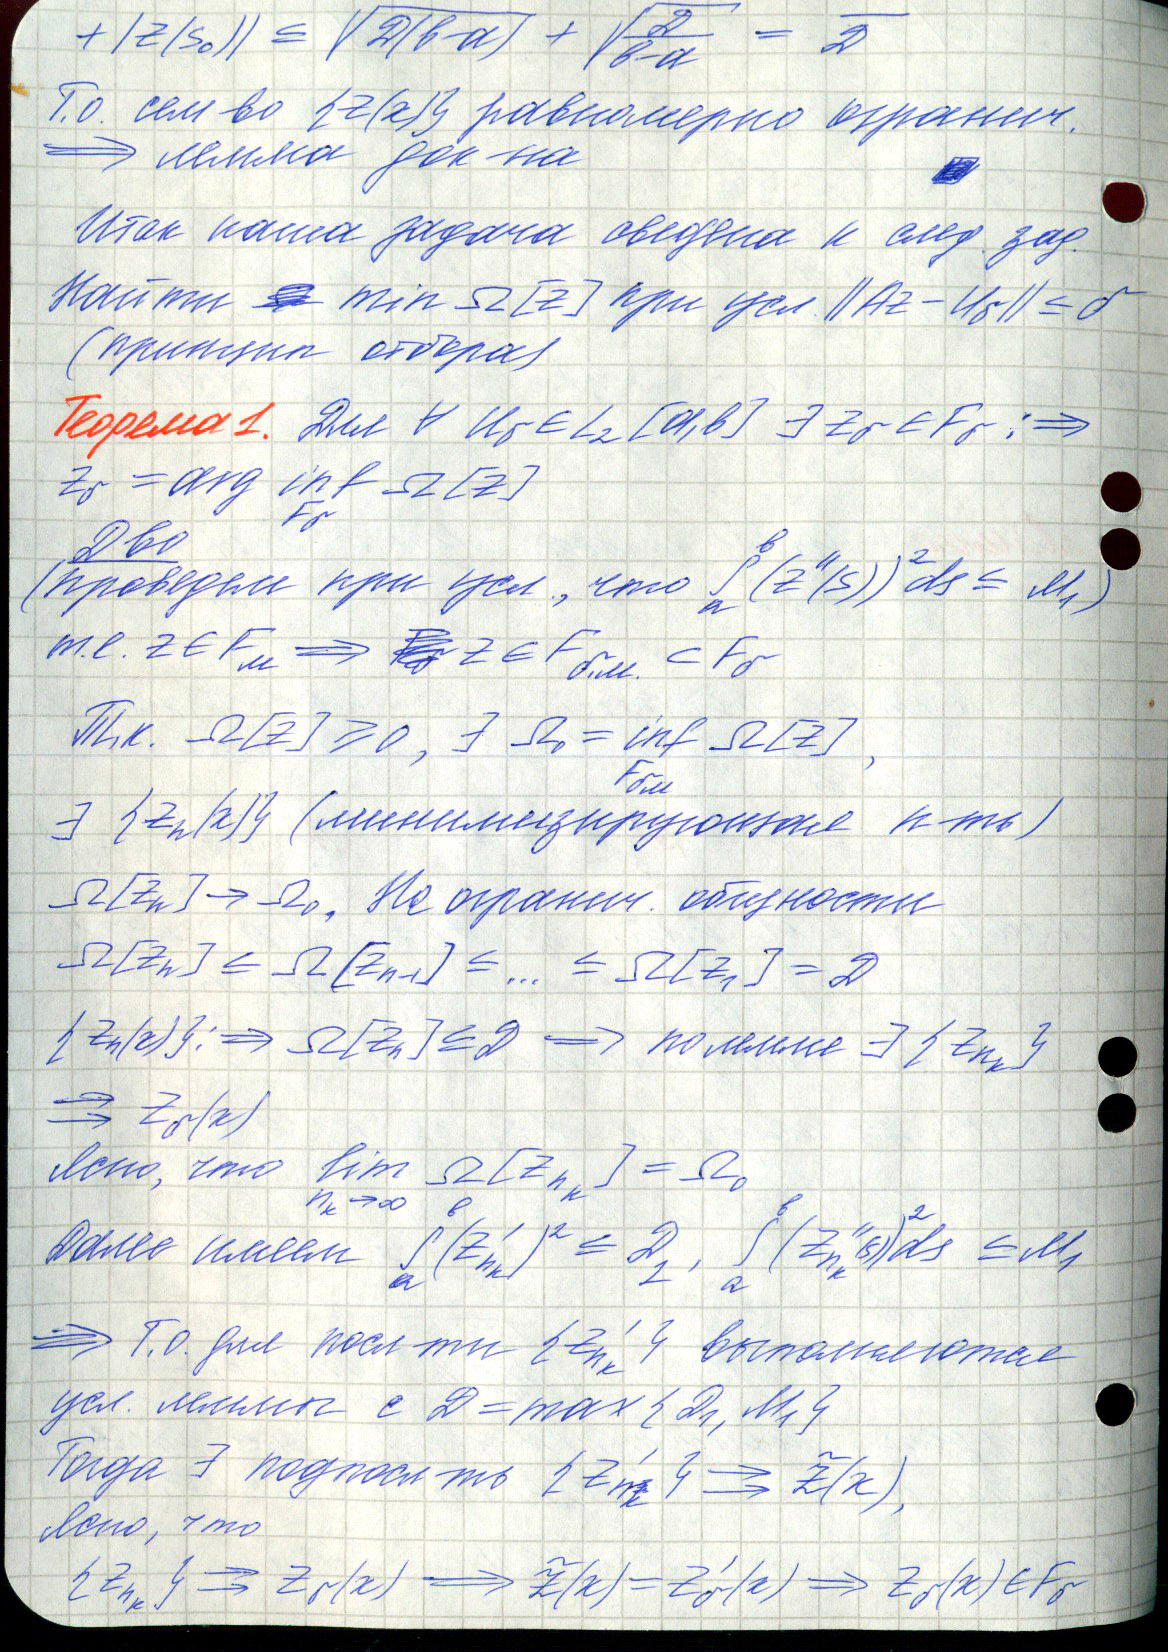 + |z(s₀)| ≤ √(D(b-a)) + √(D/(b-a)) = D̅
Т.о. сем-во {z(x)} равномерно огранич.
⟹ лемма док-на
Итак наша задача сведена к след. зад.
Найти min Ω[z] при усл. ||Az - u_δ|| ≤ δ
(принцип отбора)
Теорема 1. Для ∀ u_δ ∈ L₂[a,b] ∃ z_δ ∈ F_δ :⇒
z_δ = arg inf_{F_δ} Ω[z]
Д-во
(проведем при усл., что ∫_a^b (z''(s))² ds ≤ M₁)
т.е. z ∈ F_м ⟹ z ∈ F_{δ.м.} ⊂ F_δ
Т.к. Ω[z] ≥ 0, ∃ Ω₀ = inf_{F_{δм}} Ω[z],
∃ {z_n(x)} (минимизирующая п-ть)
Ω[z_n] → Ω₀. Не огранич. общности
Ω[z_n] ≤ Ω[z_{n-1}] ≤ ... ≤ Ω[z₁] = D
{z_n(x)} :⇒ Ω[z_n] ≤ D ⟹ по лемме ∃ {z_{n_k}}
⇉ z_δ(x)
Ясно, что lim_{n_k→∞} Ω[z_{n_k}] = Ω₀
Далее имеем ∫_a^b (z'_{n_k})² ≤ D₁, ∫_a^b (z''_{n_k}(s))² ds ≤ M₁
⟹ Т.о. для посл-ти {z'_{n_k}} выполняются
усл. леммы с D = max{D₁, M₁}
Тогда ∃ подпосл-ть {z'_{n_k}} ⇉ z̃(x),
Ясно, что
{z_{n_k}} ⇉ z_δ(x) ⟹ z̃(x) = z'_δ(x) ⟹ z_δ(x) ∈ F_δ